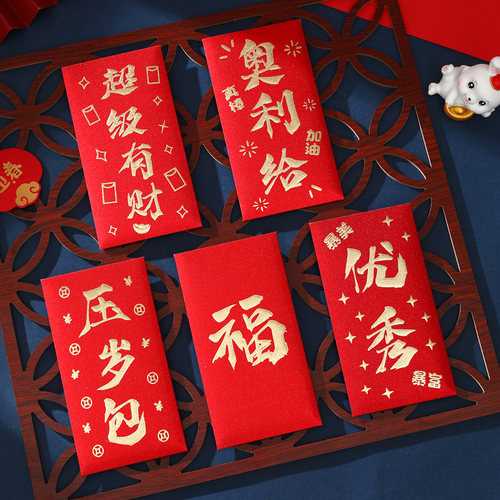 超级有财
奥利给
真棒
加油
压岁包
福
暴美
优秀
暴富